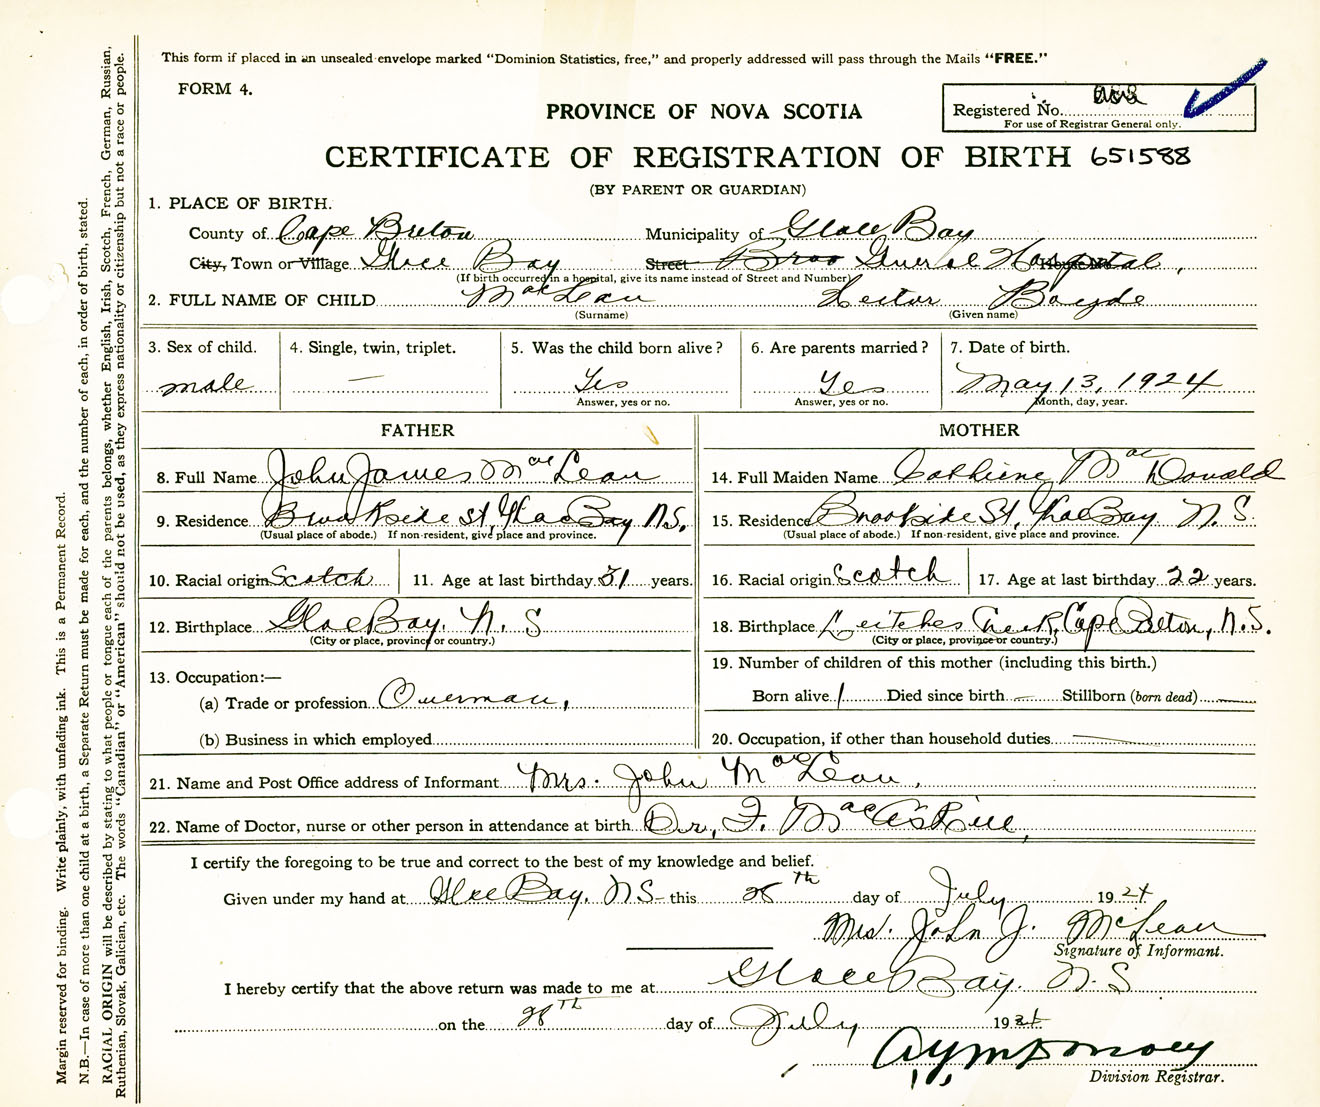 This form if placed in an unsealed envelope marked "Dominion Statistics, free," and properly addressed will pass through the Mails "FREE."
FORM 4.
PROVINCE OF NOVA SCOTIA
Registered No.
For use of Registrar General only.
CERTIFICATE OF REGISTRATION OF BIRTH 651588
(BY PARENT OR GUARDIAN)
1. PLACE OF BIRTH.
County of Cape Breton Municipality of Glace Bay
City, Town or Village Glace Bay Street General Hospital,
(If birth occurred in a hospital, give its name instead of Street and Number)
2. FULL NAME OF CHILD MacLean Hector Boyde
(Surname) (Given name)
3. Sex of child. 4. Single, twin, triplet. 5. Was the child born alive? 6. Are parents married? 7. Date of birth.
male — Yes Yes May 13, 1924
Answer, yes or no. Answer, yes or no. Month, day, year.
FATHER MOTHER
8. Full Name John James MacLean 14. Full Maiden Name Cathiene MacDonald
9. Residence Brookside St, Glace Bay N.S. 15. Residence Brookside St, Glace Bay N.S.
(Usual place of abode.) If non-resident, give place and province. (Usual place of abode.) If non-resident, give place and province.
10. Racial origin Scotch 11. Age at last birthday 31 years. 16. Racial origin Scotch 17. Age at last birthday 22 years.
12. Birthplace Glace Bay. N.S 18. Birthplace Leitches Creek, Cape Breton, N.S.
(City or place, province or country.) (City or place, province or country.)
13. Occupation:— 19. Number of children of this mother (including this birth.)
(a) Trade or profession Overman, Born alive 1 Died since birth — Stillborn (born dead) —
(b) Business in which employed 20. Occupation, if other than household duties —
21. Name and Post Office address of Informant Mrs. John MacLean,
22. Name of Doctor, nurse or other person in attendance at birth Dr, F. MacAskill,
I certify the foregoing to be true and correct to the best of my knowledge and belief.
Given under my hand at Glace Bay, N.S— this 28th day of July 1924
Mrs. John J. McLean
Signature of Informant.
I hereby certify that the above return was made to me at Glace Bay. N.S
on the 28th day of July 1924
Division Registrar.
Margin reserved for binding. Write plainly, with unfading ink. This is a Permanent Record.
N.B.—In case of more than one child at a birth, a Separate Return must be made for each, and the number of each, in order of birth, stated.
RACIAL ORIGIN will be described by stating to what people or tongue each of the parents belongs, whether English, Irish, Scotch, French, German, Russian,
Ruthenian, Slovak, Galician, etc. The words "Canadian" or "American" should not be used, as they express nationality or citizenship but not a race or people.